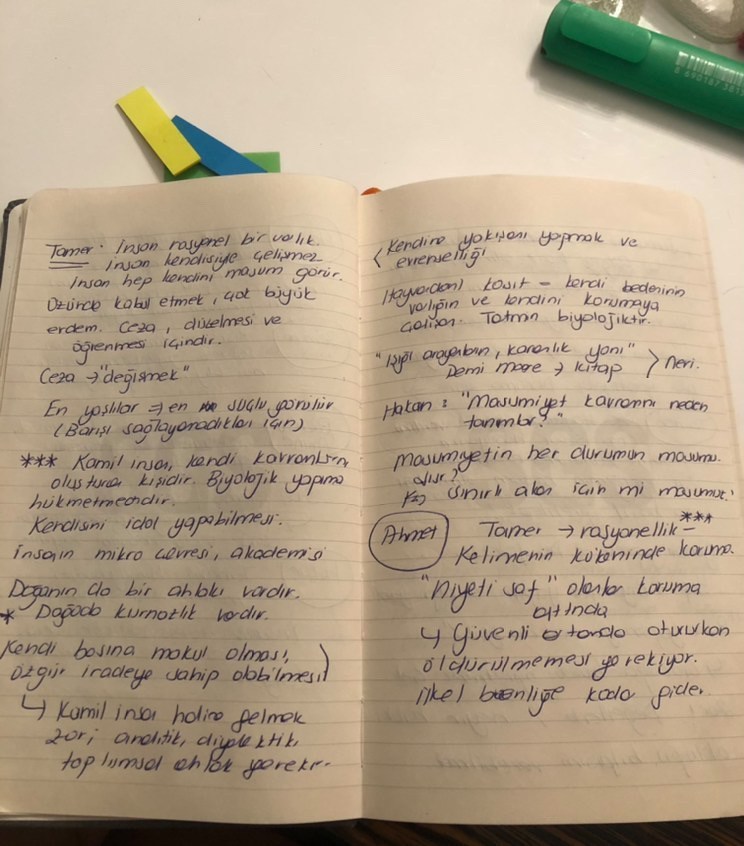 Tamer: İnsan rasyonel bir varlık.
İnsan kendisiyle çelişmez
İnsan hep kendini masum görür.
Özünde kabul etmek, çok büyük
erdem. Ceza, düzelmesi ve
öğrenmesi içindir.
Ceza → "değişmek"
En yaşlılar ⇒ en suçlu görülür
(Barışı sağlayamadıkları için)
*** Kamil insan, kendi kavramlarını
oluşturan kişidir. Biyolojik yapıma
hükmetmendir.
Kendisini idol yapabilmesi.
İnsanın mikro çevresi, akademisi
Doğanın da bir ahlakı vardır.
* Doğada kurnazlık vardır.
Kendi başına makul olması,
özgür iradeye sahip olabilmesi
↳ Kamil insan haline gelmek
zor; analitik, diyalektik,
toplumsal ahlak gerekir.
Kendine yakışanı yapmak ve
evrenselliği
Hayvandan kasıt = kendi bedeninin
varlığın ve kendini korumaya
çalışan. Tatmin biyolojiktir.
"Işığı arayanların, karanlık yanı"
Demi Moore → kitap > Neri.
Hakan: "Masumiyet kavramını neden
tanımlar?"
Masumiyetin her durumun masumu
mudur?
sınırlı alan için mi masumuz?
Ahmet Tamer → rasyonellik - ***
Kelimenin kökeninde koruma.
"Niyeti saf" olanlar koruma
altında
↳ Güvenli ortamda otururken
öldürülmemesi gerekiyor.
ilkel benliğe kadar gider